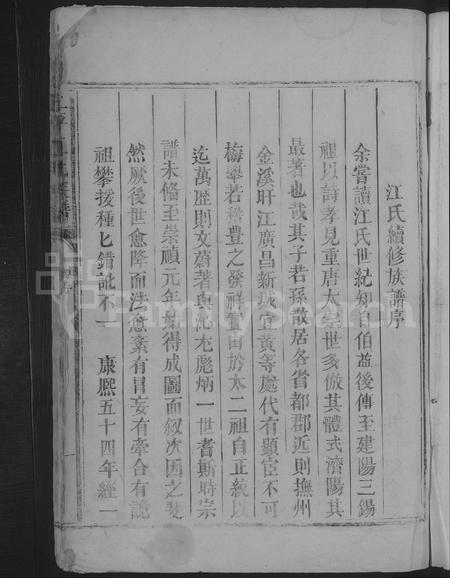 江氏續修族譜序
余嘗讀江氏世紀知自伯益後傳至建陽三錫
祖以詩孝見重唐太宗世多倣其體式濟陽其
最著也哉其子若孫散居各省都郡近則撫州
金溪旴江廣昌新城宜黃等處代有顯宦不可
梅舉若稽豐之發祥實由於本二祖自正統以
迄萬歷則文蔚著與允彪炳一世耆斯時宗
譜未脩至崇禎元年始得成圖而叙次因之斐
然厥後世愈降而法愈紊有冒妄有牽合有詭
祖攀援種匕錯訛不一 康熙五十四年經一
FamilySearch